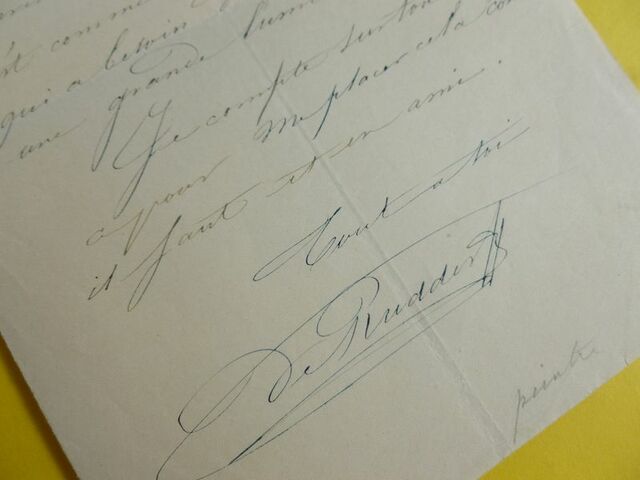 comme
qui a besoin
une grande lumi
Je compte sur toi
pour me placer cela com
il faut et en ami.
Tout a toi
De Rudder
peintre